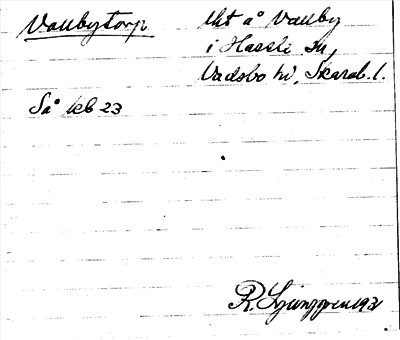 Vallbytorp
Utj å Vallby
i Hassle sn,
Vadsbo hd, Skarab. l.
Så kb 23
R. Ljunggren 1931